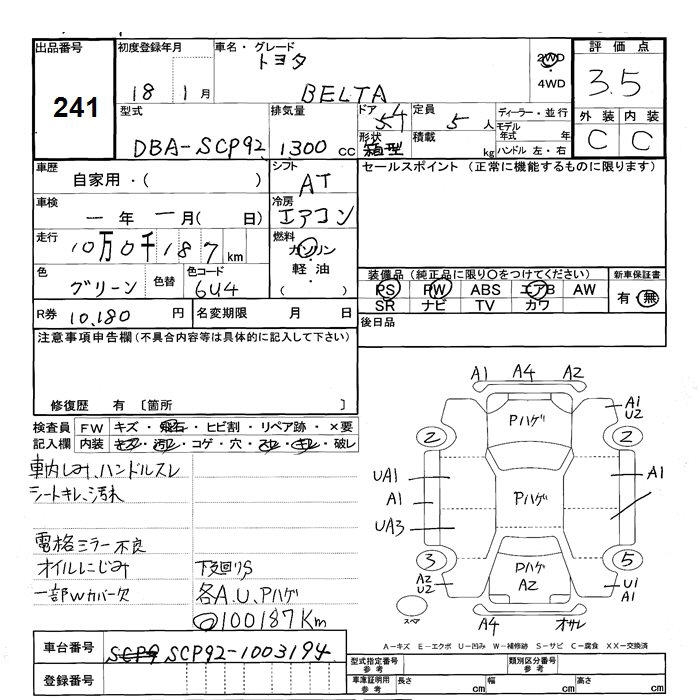 出品番号 初度登録年月 車名・グレード 評価点
241 18 1月 トヨタ BELTA 2WD 4WD 3.5
型式 排気量 ドア 定員 ディーラー・並行 外装 内装
DBA-SCP92 1300cc 4 5人 モデル年式 年 C C
形状 箱型 積載 kg ハンドル 左・右
車歴 シフト セールスポイント (正常に機能するものに限ります)
自家用・( ) AT
車検 冷房
一年 一月( 日) エアコン
走行 燃料
10万0千187km ガソリン
色 色替 色コード 軽油・ 装備品 (純正品に限り○をつけてください) 新車保証書
グリーン 6U4 ( ) PS PW ABS エアB AW 有・無
SR ナビ TV カワ
R券 10,180円 名変期限 月 日 後日品
注意事項申告欄(不具合内容等は具体的に記入して下さい)
修復歴 有 〔箇所 〕
検査員 FW キズ・飛石・ヒビ割・リペア跡・×要
記入欄 内装 キズ・汚レ・コゲ・穴・スレ・キレ・破レ
車内しみ、ハンドルスレ
シートキレ、汚れ
電格ミラー不良
オイルにじみ 下廻りS
一部Wカバー欠 各A.U.Pハゲ
○100187Km
A1 A4 A2
Pハゲ
A1
U2
2 2
UA1 A1
A1 Pハゲ
UA3
3 5
A2
U2
Pハゲ
A2
U1
A1
スペア A4 オサレ
A-キズ E-エクボ U-凹み W-補修跡 S-サビ C-腐食 XX-交換済
車台番号 SCP9 SCP92-1003194
登録番号
型式指定番号 参考 類別区分番号 参考
車庫証明用 参考 長さ cm 幅 cm 高さ cm